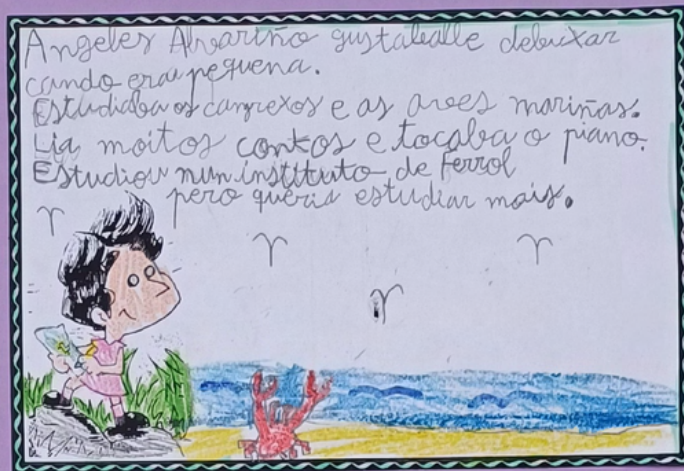 Angeles Alvariño gustaballe debuxar
cando era pequena.
Estudiaba os cangrexos e as aves mariñas.
Lia moitos contos e tocaba o piano.
Estudiou nun instituto de Ferrol
pero queria estudiar mais.